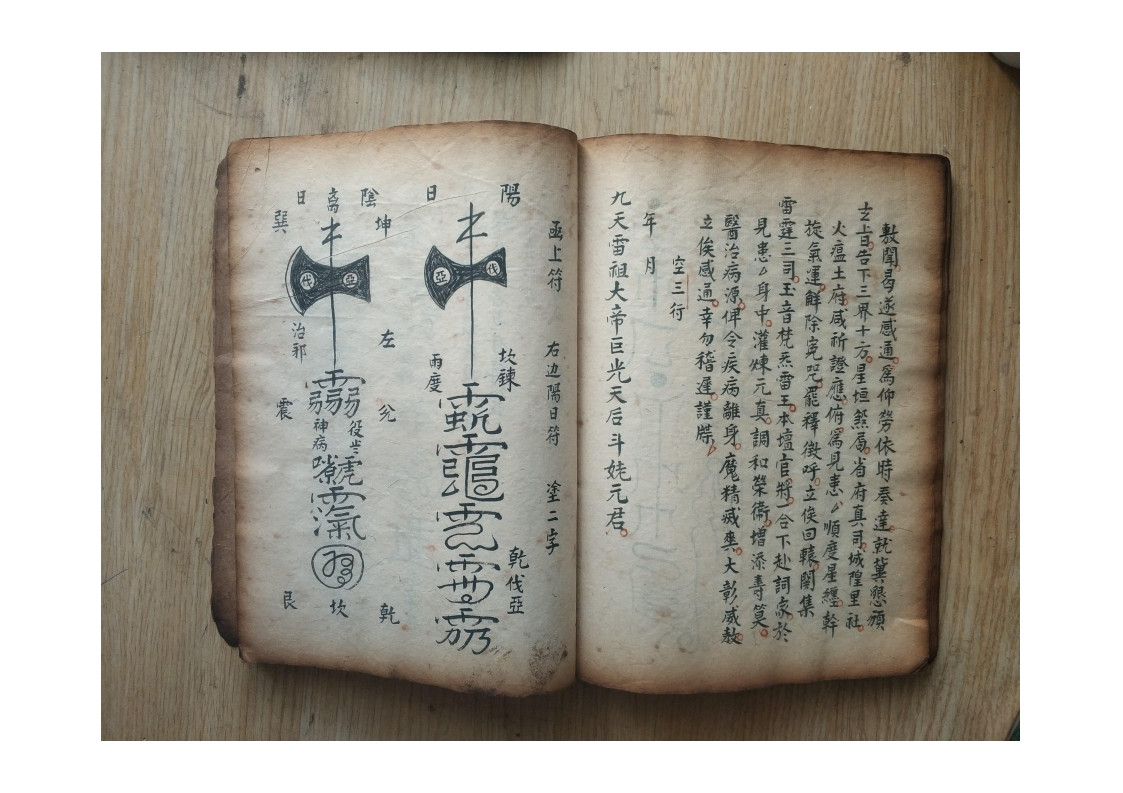 敷聞曷遂感通爲仰勞依時奏達就冀懇禱
上告下三界十方星垣煞局省府真司城隍里社
火瘟土府咸祈證應俯爲見患〃順度星纏幹
旋氣運解除冤咒罷釋徵呼立俟回轅關集
雷霆三司玉音梵炁雷王本壇官將一合下赴詞家於
見患〃身中灌煉元真調和榮衛增添壽筭
醫治病源俾令疾病離身魔精滅爽大彰威赦
立俟感通幸勿稽遲謹牒
空三行
年 月
九天雷祖大帝巨光天后斗姥元君
函上符 右边陽日符 塗二字
陽 日
亞 伐
坎鍊
雨度
乾伐亞
陰 日
坤 离 巽
伐 亞
左
治邪
兊
震
役
神病
乾 坎 艮